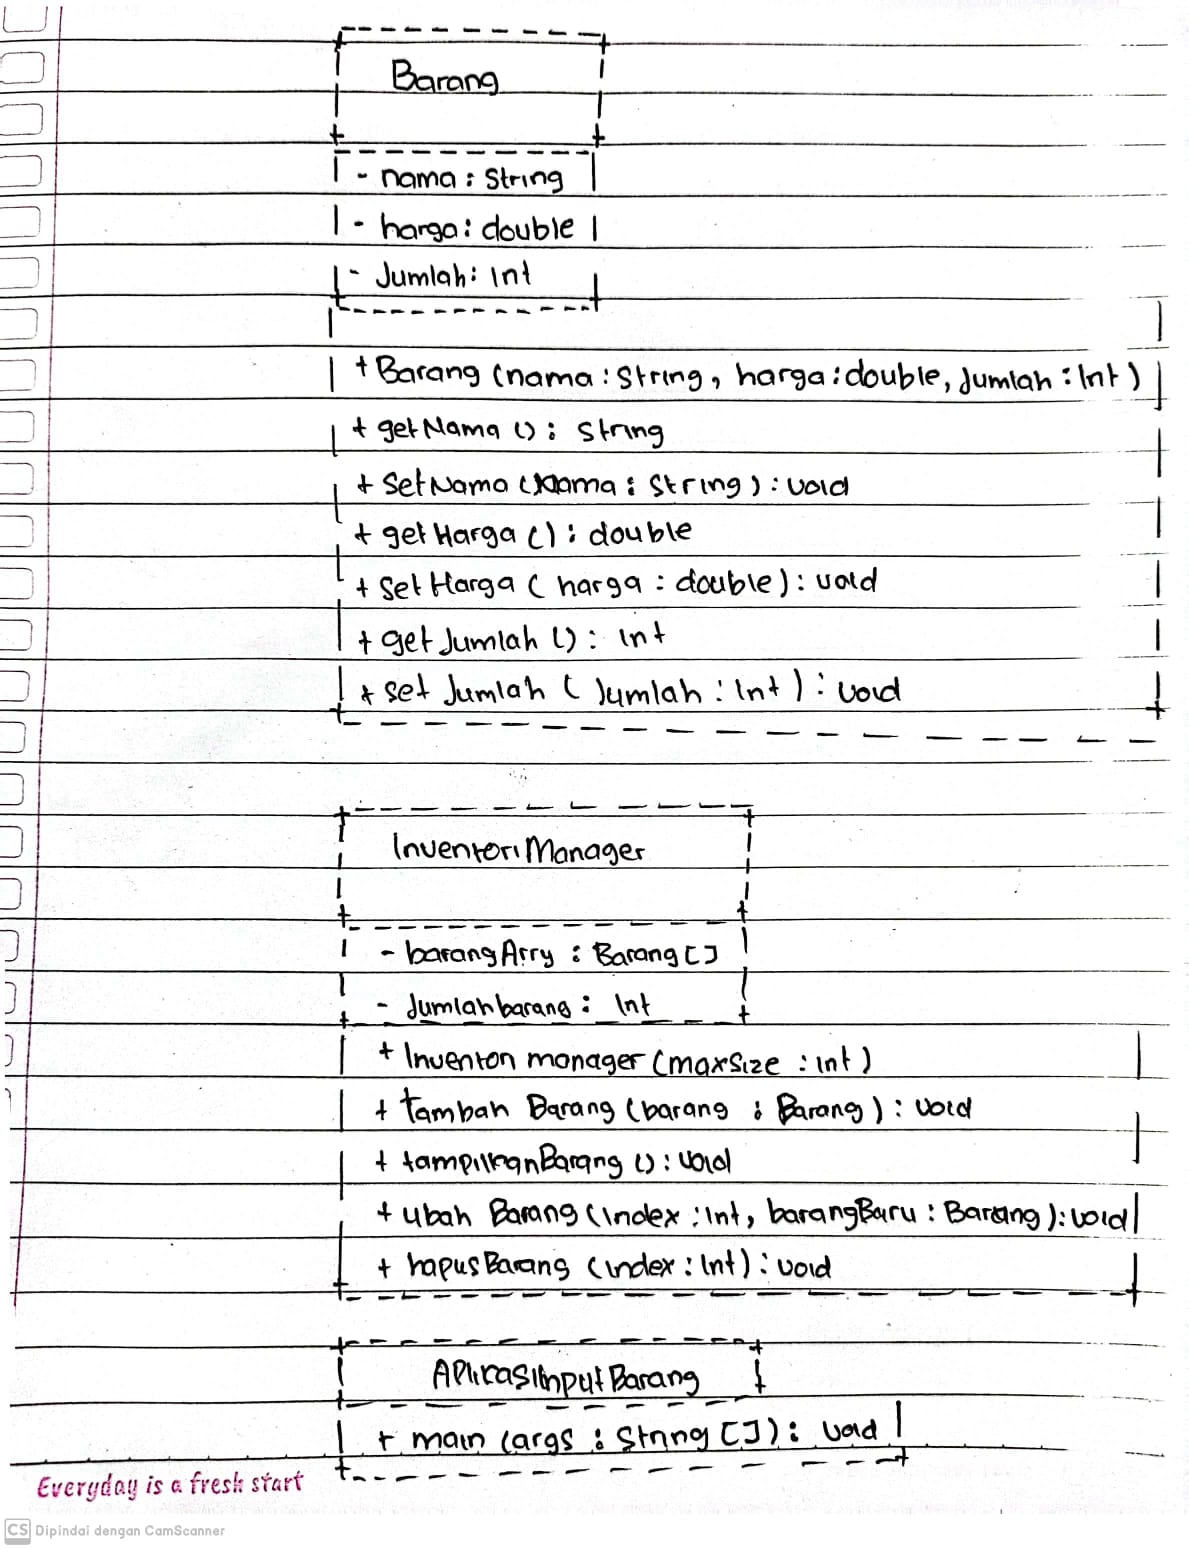 Barang
- nama : String
- harga : double
- Jumlah : Int
+ Barang (nama : String, harga : double, Jumlah : Int)
+ getNama () : String
+ SetNama (Nama : String) : void
+ getHarga () : double
+ SetHarga ( harga : double) : void
+ getJumlah () : Int
+ set Jumlah ( Jumlah : Int ) : void
InventoriManager
- barangArry : Barang []
- Jumlahbarang : Int
+ Inventori manager (maxSize : int)
+ Tambah Barang (barang : Barang) : void
+ tampilkanBarang () : void
+ ubah Barang (Index : Int, barangBaru : Barang) : void
+ hapusBarang (Index : Int) : void
AplikasiInputBarang
+ main (args : String []) : void
Everyday is a fresh start
CS Dipindai dengan CamScanner